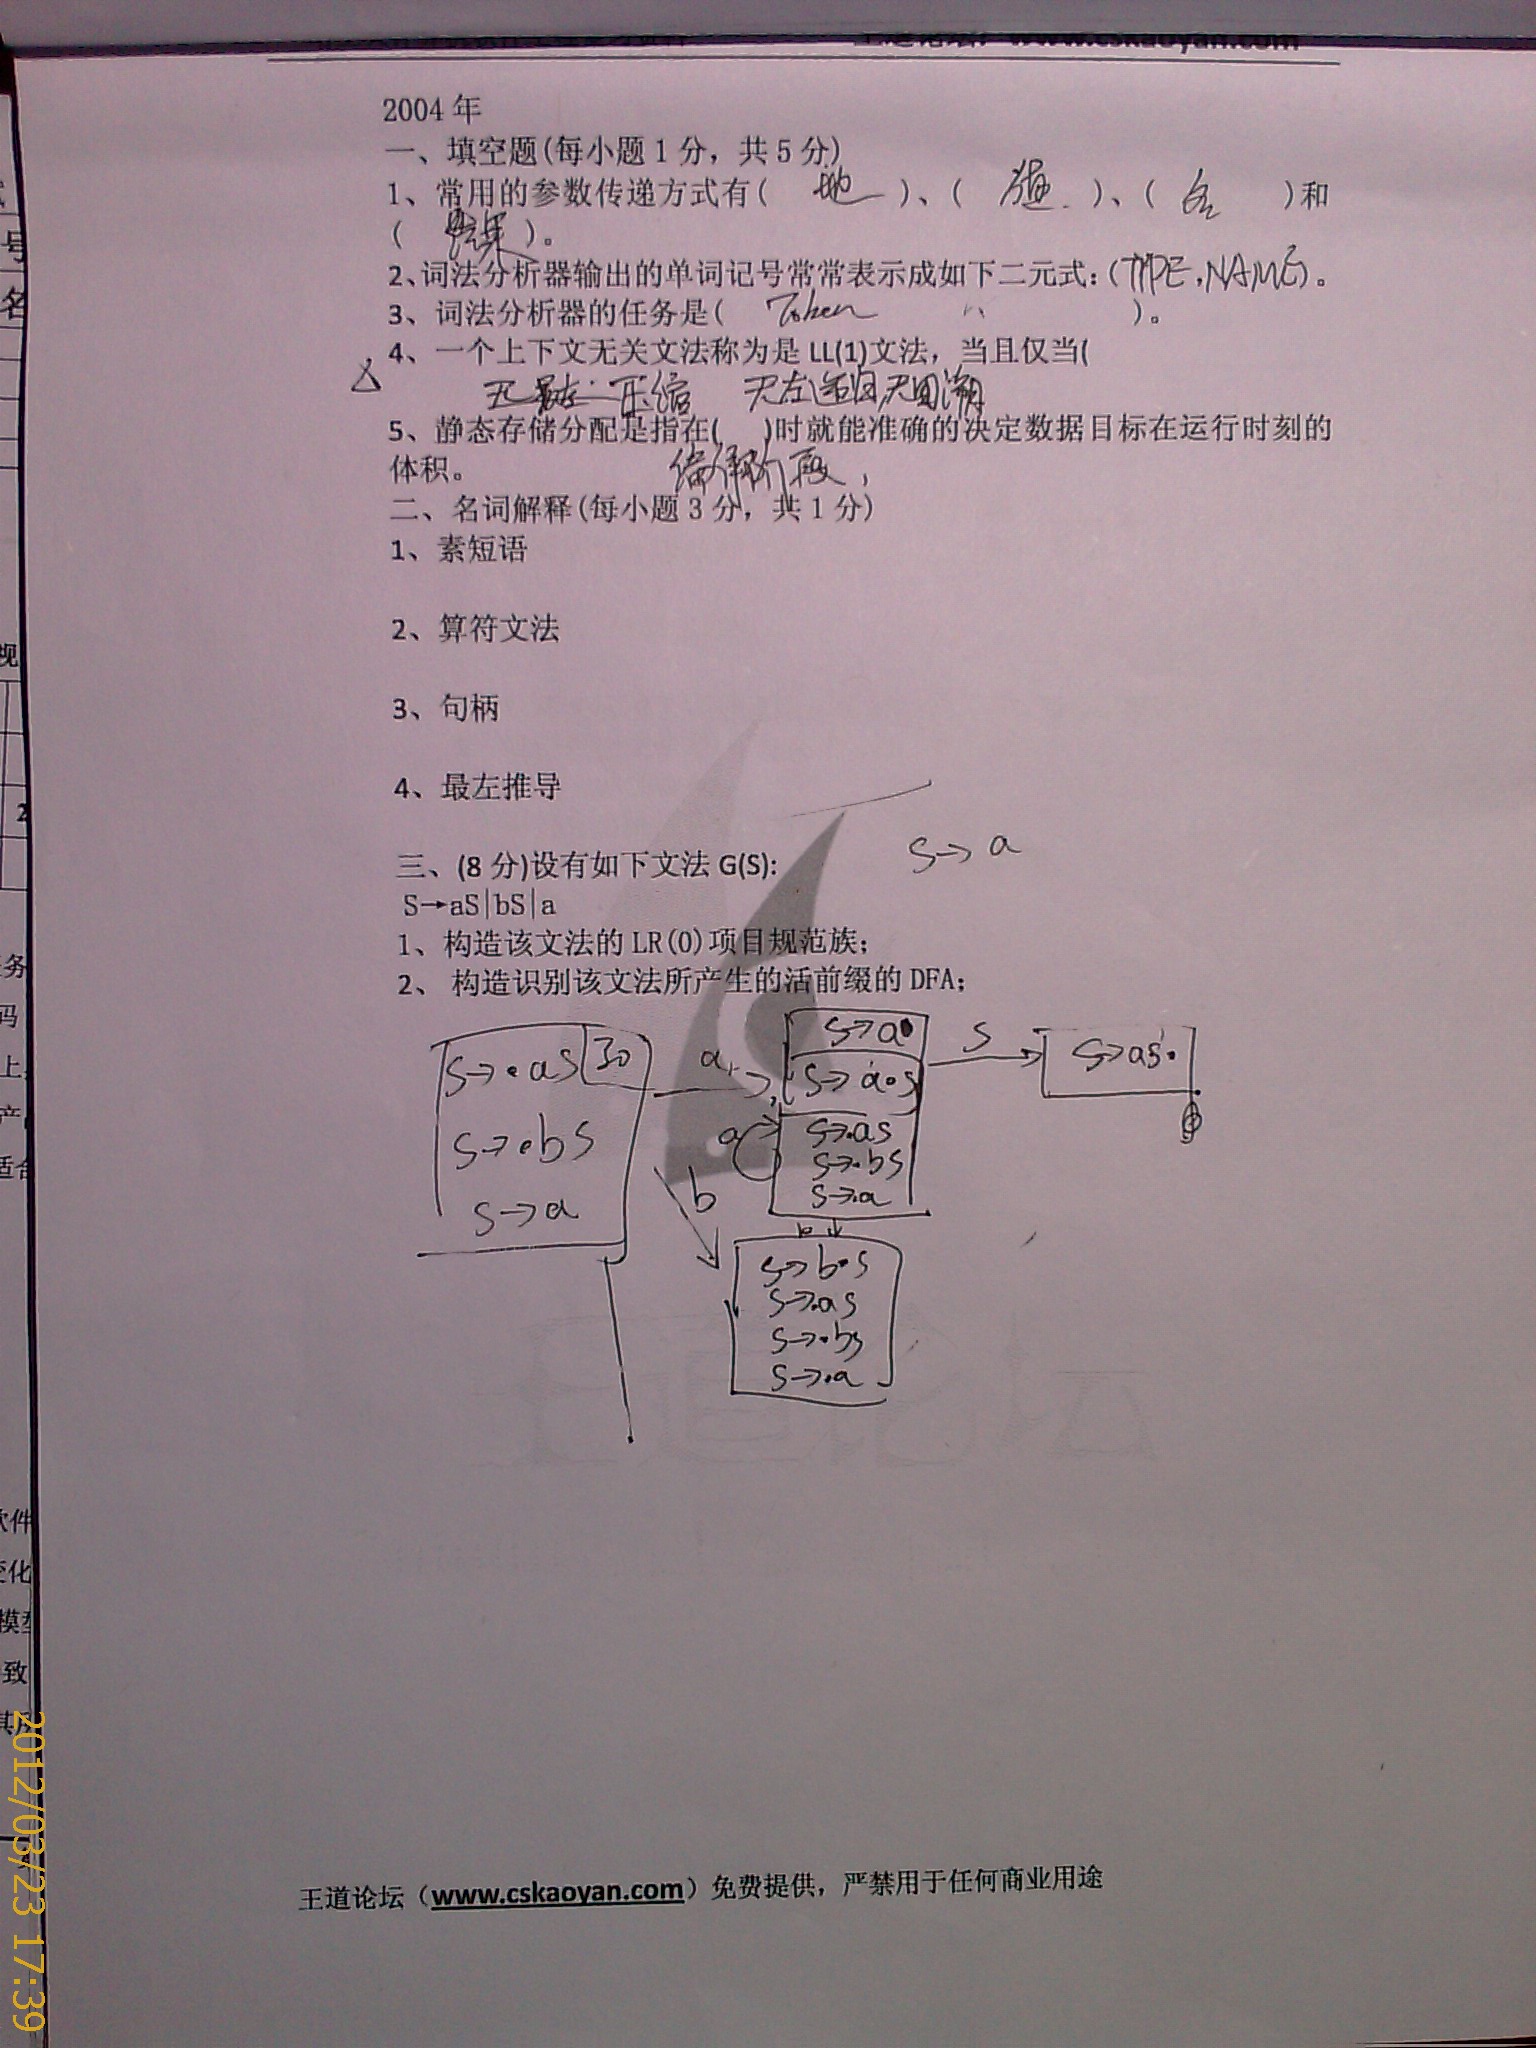 www.cskaoyan.com
2004 年
一、填空题(每小题 1 分，共 5 分)
1、常用的参数传递方式有( 地 )、( 值 )、( 名 )和
( 结果 )。
2、词法分析器输出的单词记号常常表示成如下二元式：(TYPE,NAME)。
3、词法分析器的任务是( Token )。
4、一个上下文无关文法称为是 LL(1)文法，当且仅当(
压缩 无左递归,无回溯
5、静态存储分配是指在( )时就能准确的决定数据目标在运行时刻的
体积。 编译阶段,
二、名词解释(每小题 3 分，共 1 分)
1、素短语
2、算符文法
3、句柄
4、最左推导
S→a
三、(8 分)设有如下文法 G(S):
S→aS|bS|a
1、构造该文法的 LR(0)项目规范族；
2、 构造识别该文法所产生的活前缀的 DFA；
S→a
S→•aS I0 a S→a•S S S→aS•
a S→•aS
S→•bS S→•bS
b S→•a
S→a
b
S→b•S
S→•aS
S→•bS
S→•a
王道论坛（www.cskaoyan.com）免费提供，严禁用于任何商业用途
号
名
视
2
务
码
上
产
适合
软件
变化
模型
致
其所
2012/03/23 17:39